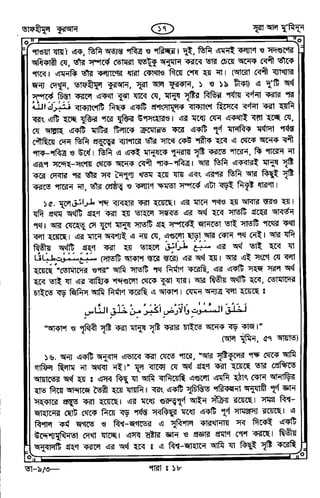 তাফহীমুল কুরআন
১৭
সূরা আল মু'মিনুন
পাওয়া যায়। এক, তিনি অত্যন্ত পবিত্র ও পরিচ্ছন্ন। দুই, তিনি এমনই কল্যাণ ও সদগুণের
অধিকারী যে, তাঁর সম্পর্কে তোমরা যতটুকু অনুমান করবে তার চেয়ে অনেক বেশী তাঁকে
পাবে। এমনকি তাঁর কল্যাণের ধারা কোথাও গিয়ে শেষ হয় না। (আরো বেশী ব্যাখ্যার
জন্য দেখুন, তাফহীমুল কুরআন, সূরা আল ফুরকান, ১ ও ১৯ টীকা) এ দু'টি অর্থ
সম্পর্কে চিন্তা করলে একথা বুঝা যাবে যে, মানুষ সৃষ্টির বিভিন্ন পর্যায় বর্ণনা করার পর
فتبرك الله বাক্যাংশটি নিছক একটি প্রশংসামূলক বাক্যাংশ হিসেবে বর্ণনা করা হয়নি
বরং এটি হচ্ছে যুক্তির পরে যুক্তির উপসংহারও। এর মধ্যে যেন একথাই বলা হচ্ছে যে,
যে আল্লাহ একটি মাটির ঢিলাকে ক্রমোন্নত করে একটি পূর্ণ মানবিক মর্যাদা পর্যন্ত
পৌঁছিয়ে দেন তিনি প্রভুত্বের ব্যাপারে তাঁর সাথে কেউ শরীক হবে এ থেকে অনেক বেশী
পাক-পবিত্র ও উর্ধে। তিনি এ একই মানুষকে পুনরায় সৃষ্টি করতে পারেন, কি পারেন না
এরূপ সন্দেহ-সংশয় থেকে অনেক বেশী পাক-পবিত্র। আর তিনি একবারই মানুষ সৃষ্টি
করে দেবার পর তাঁর সব নৈপুণ্য খতম হয়ে যায় এবং এরপর তিনি আর কিছুই সৃষ্টি
করতে পারেন না, তাঁর শ্রেষ্ঠত্ব ও কল্যাণ ক্ষমতা সম্পর্কে এটা বড়ই নিকৃষ্ট ধারণা।
১৫. মূলে طرائق শব্দ ব্যবহার করা হয়েছে। এর মানে পথও হয় আবার স্তরও হয়।
যদি প্রথম অর্থটি গ্রহণ করা হয় তাহলে সম্ভবত এর অর্থ হবে সাতটি গ্রহের আবর্তন
পথ। আর যেহেতু সে যুগে মানুষ সাতটি গ্রহ সম্পর্কেই জানতো তাই সাতটি পথের কথা
বলা হয়েছে। এর মানে অবশ্যই এ নয় যে, এগুলো ছাড়া আর কোন পথ নেই। আর যদি
দ্বিতীয় অর্থটি গ্রহণ করা হয় তাহলে سبع طرائق এর অর্থ তাই হবে যা
سبع سموت طباقا (সাতটি আকাশ স্তরে স্তরে) এর অর্থ হয়। আর এই সংগে যে বলা
হয়েছে "তোমাদের ওপর" আমি সাতটি পথ নির্মাণ করেছি, এর একটি সহজ সরল অর্থ
হবে তাই যা এর বাহ্যিক শব্দগুলো থেকে বুঝা যায়। আর দ্বিতীয় অর্থটি হবে, তোমাদের
চাইতে বড় জিনিস আমি নির্মাণ করেছি এ আকাশ। যেমন অন্যত্র বলা হয়েছে ঃ
لخلق السموت والأرض أكبر من خلق الناس
"আকাশ ও পৃথিবী সৃষ্টি করা মানুষ সৃষ্টি করার চাইতে অনেক বড় কাজ।"
(আল মুমিন, ৫৭ আয়াত)
১৬. অন্য একটি অনুবাদ এভাবে করা যেতে পারে, "আর সৃষ্টিকুলের পক্ষ থেকে আমি
গাফিল ছিলাম না অথবা নই।" মূল বাক্যে যে অর্থ গ্রহণ করা হয়েছে তার প্রেক্ষিতে
আয়াতের অর্থ হয় ঃ এসব কিছু যা আমি বানিয়েছি এগুলো এমনি হঠাৎ কোন আনাড়ির
হাত দিয়ে আন্দাজে তৈরী হয়ে যায়নি। বরং একটি সুচিন্তিত পরিকল্পনা অনুযায়ী পূর্ণ জ্ঞান
সহকারে প্রস্তুত করা হয়েছে। এর মধ্যে গুরুত্বপূর্ণ আইন সক্রিয় রয়েছে। সমগ্র বিশ্ব-
জাহানের ছোট থেকে নিয়ে বড় পর্যন্ত সবকিছুর মধ্যে একটি পূর্ণ সামঞ্জস্য রয়েছে। এ
বিশাল কর্ম জগতে ও বিশ্ব-জগতের এ সুবিশাল কারখানায় সব দিকেই একটি
উদ্দেশ্যমুখিনতা দেখা যাচ্ছে। এসব স্রষ্টার জ্ঞান ও প্রজ্ঞার প্রমাণ পেশ করছে। দ্বিতীয়
অনুবাদটি গ্রহণ করলে এর অর্থ হবে ঃ এ বিশ্ব-জাহানে আমি যা কিছুই সৃষ্টি করেছি
তা-৯/৩—
পারা ঃ ১৮